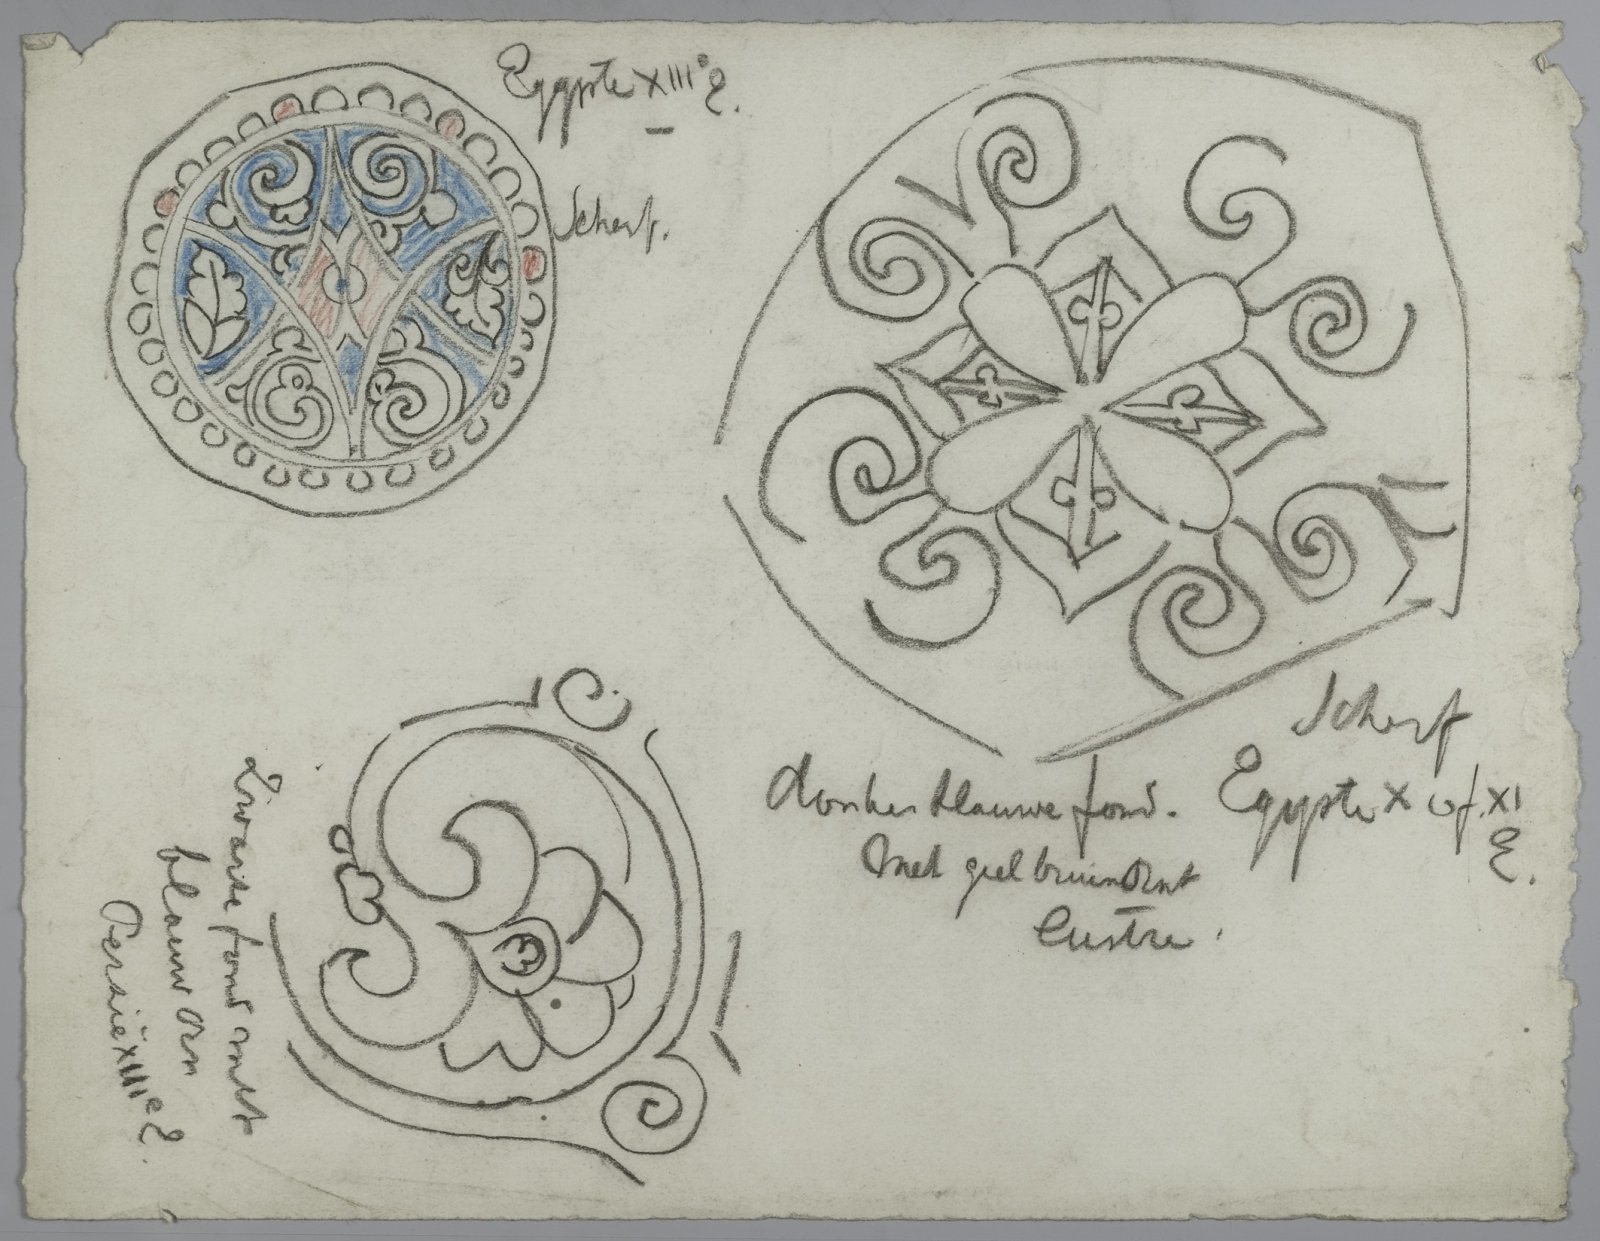 Egypte XIIIe E.
Scherf.
Scherf
Egypte X of XI
E.
donker blauwe fond.
Met geel bruin Ornt
Lustre.
Zwarte fond met
blauw orn
Perzië XIIIe E.